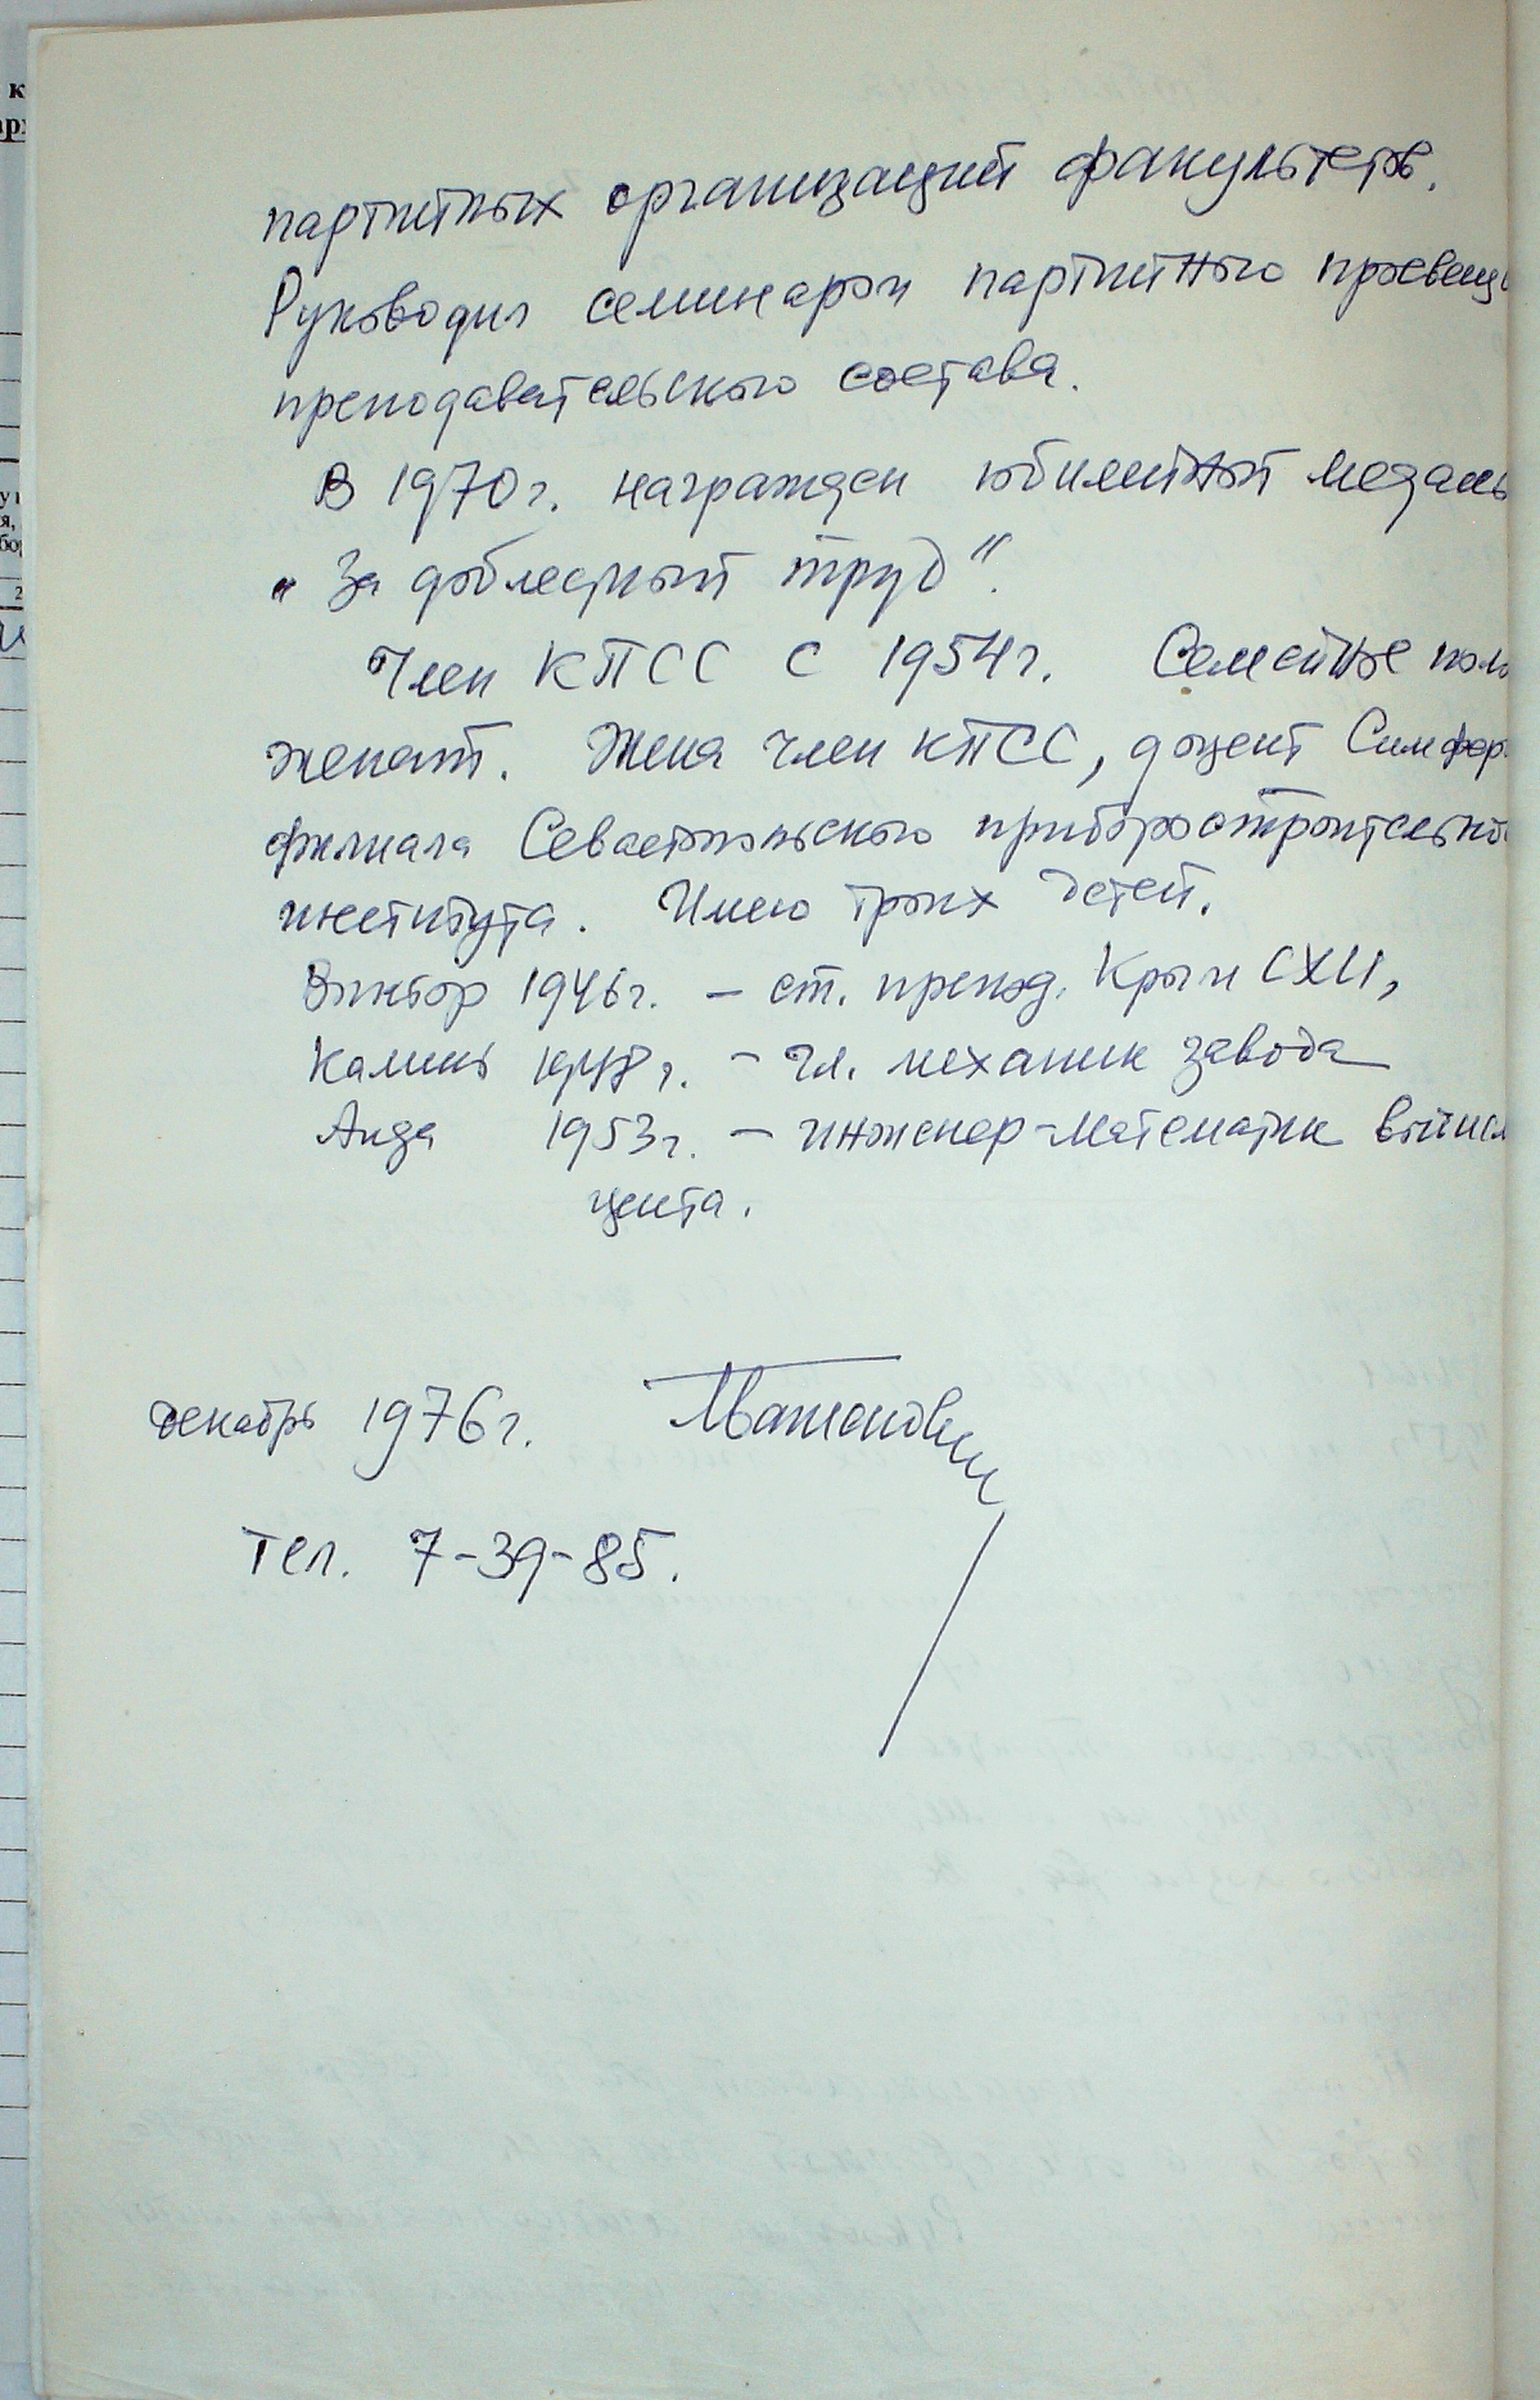 партийных организаций факультетов.
Руководил семинаром партийного просвещ
преподавательского состава.
В 1970г. награжден юбилейной медаль
„За доблестный труд".
Член КПСС с 1954г. Семейное поло
женат. Жена член КПСС, доцент Симфер
филиала Севастопольского приборостроительно
института. Имею троих детей.
Виктор 1946г. – ст. препод. Крым СХИ,
Камиль 1948г. – гл. механик завода
Аида 1953г. – инженер-математик вычисл
центра.
декабрь 1976г.
Тел. 7-39-85.